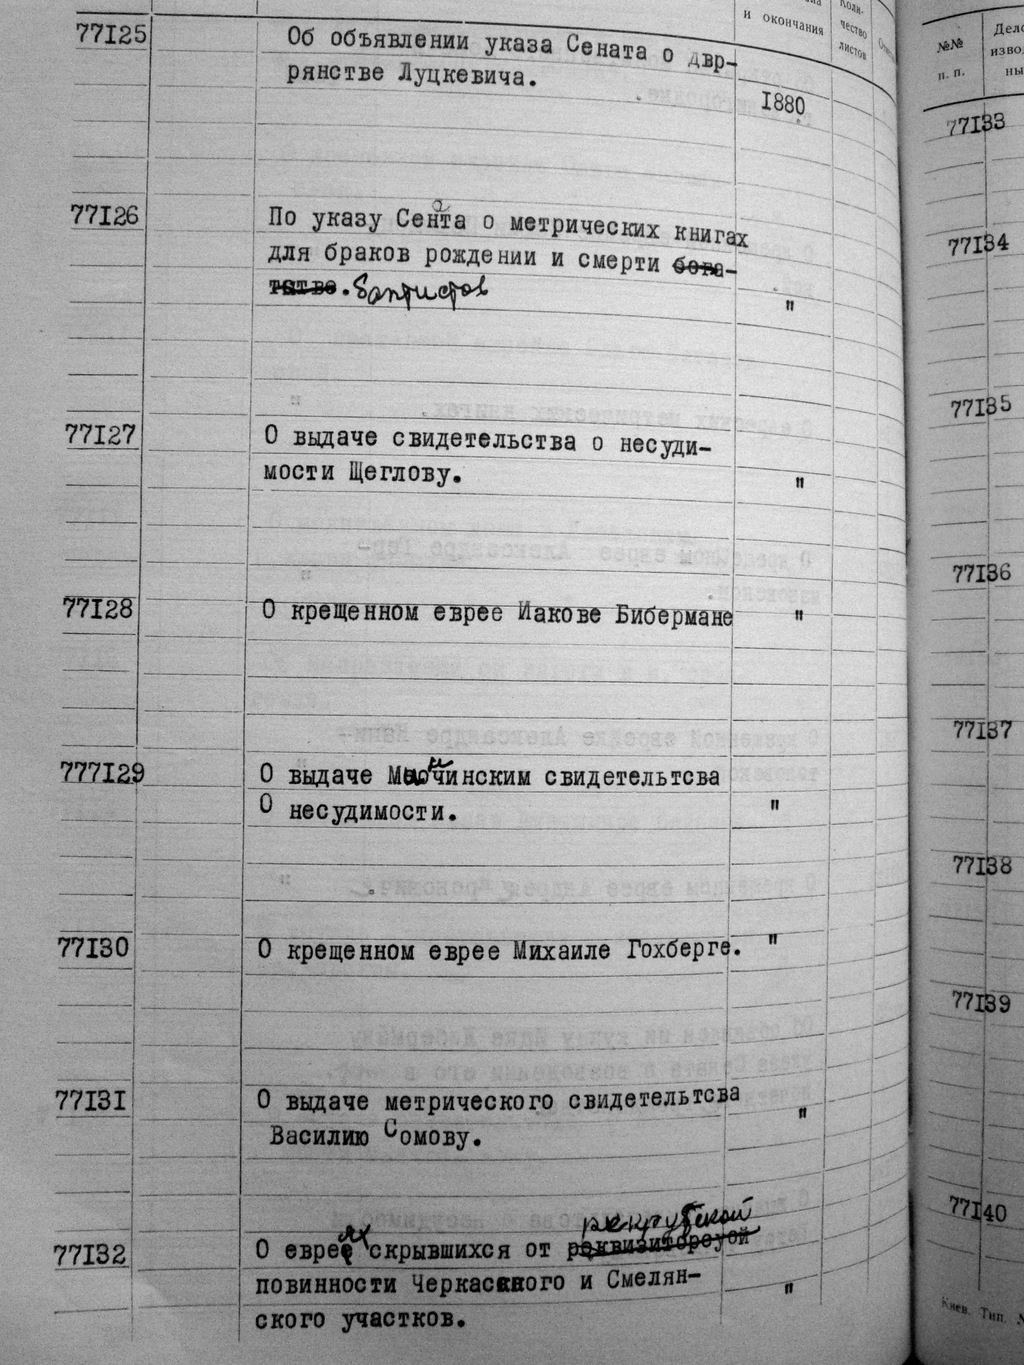 и окончания
чество
листов
77I25
Об объявлении указа Сената о двр-
рянстве Луцкевича.
I880
77I26
По указу Сената о метрических книгах
для браков рождении и смерти бога-
тстве. баптистов
"
77I27
О выдаче свидетельства о несуди-
мости Щеглову.
"
77I28
О крещенном еврее Иакове Бибермане
"
777I29
О выдаче свидетельтсва
О несудимости.
"
77I30
О крещенном еврее Михаиле Гохберге.
"
77I3I
О выдаче метрического свидетельтсва
Василию Сомову.
"
77I32
рекрутской
О евреях скрывшихся от
повинности и Смелян-
ского участков.
"
№№
п. п.
77I33
77I34
77I35
77I36
77I37
77I38
77I39
77I40
Киев. Тип.